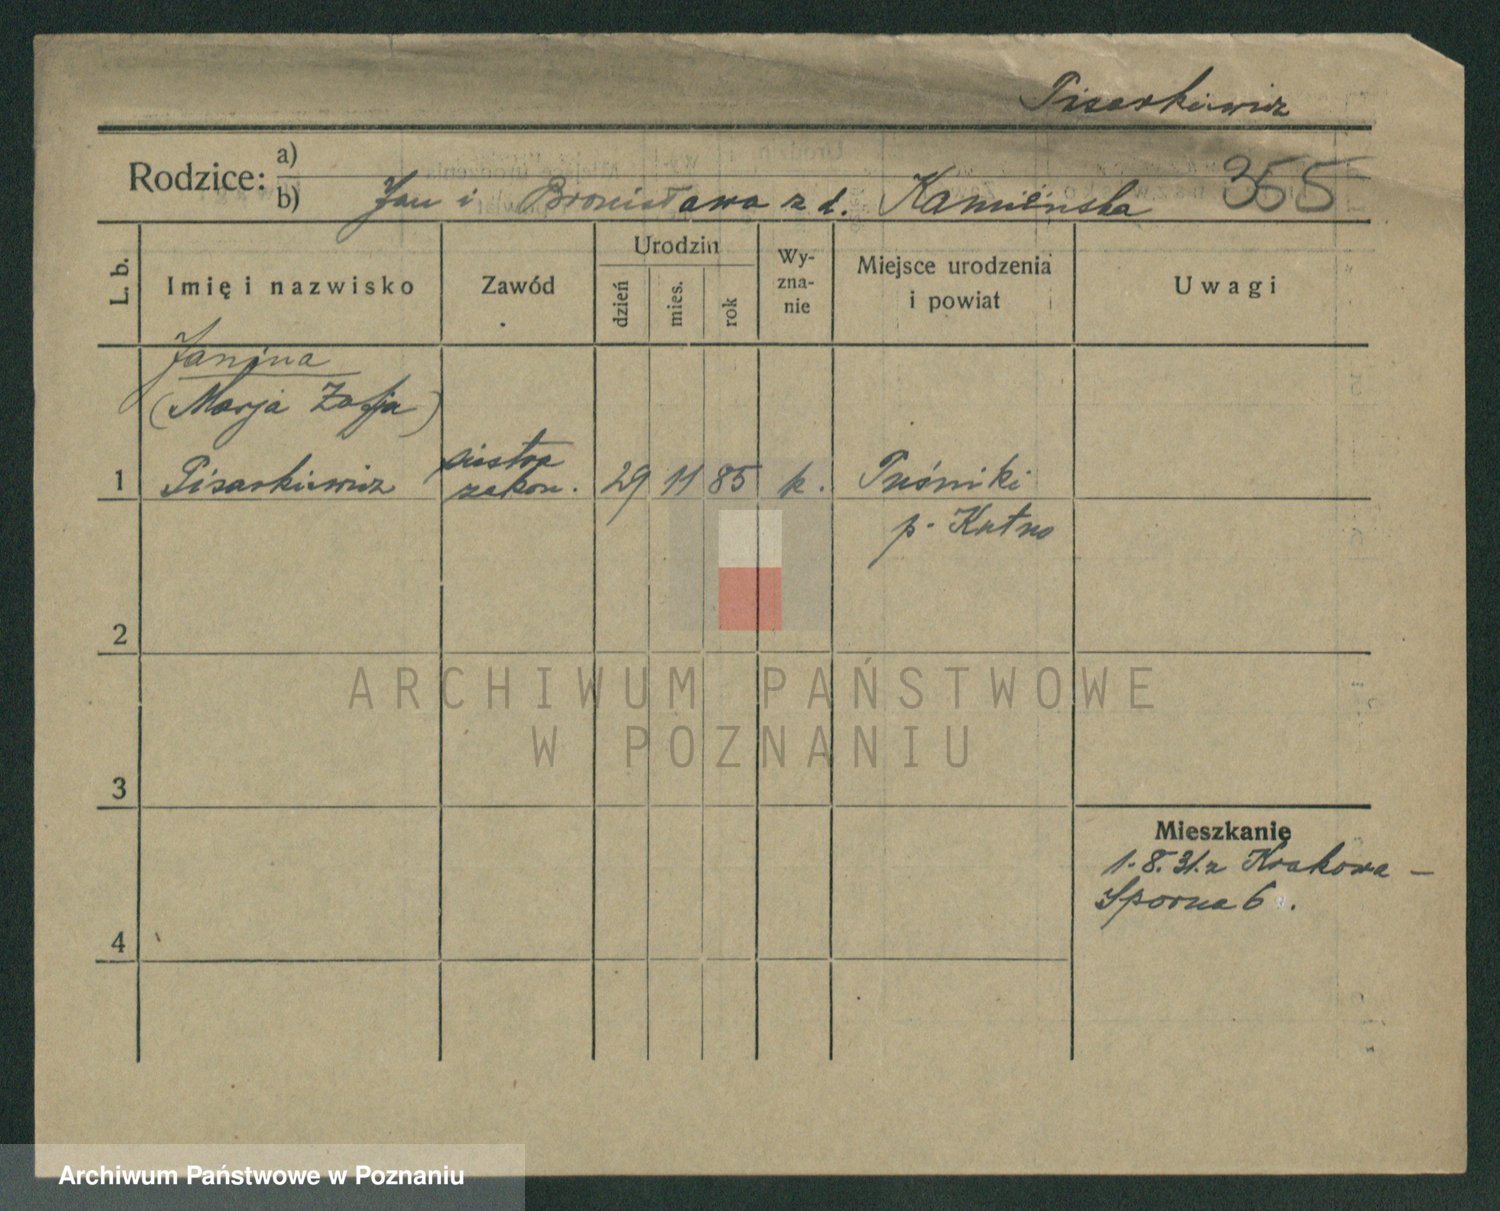 Pisarkiewicz
Rodzice: a)
b) Jan i Bronisława z d. Kamieńska 355
L. b.
Imię i nazwisko
Zawód
Urodzin
dzień
mies.
rok
Wy-
zna-
nie
Miejsce urodzenia
i powiat
Uwagi
Janina
(Marja Zofja)
1 Pisarkiewicz siostra
zakon. 29 11 85 k.
p. Kutno
2
3
4
Mieszkanie
1.8.31. z Krakowa –
Sporna 6.
ARCHIWUM PAŃSTWOWE
W POZNANIU
Archiwum Państwowe w Poznaniu